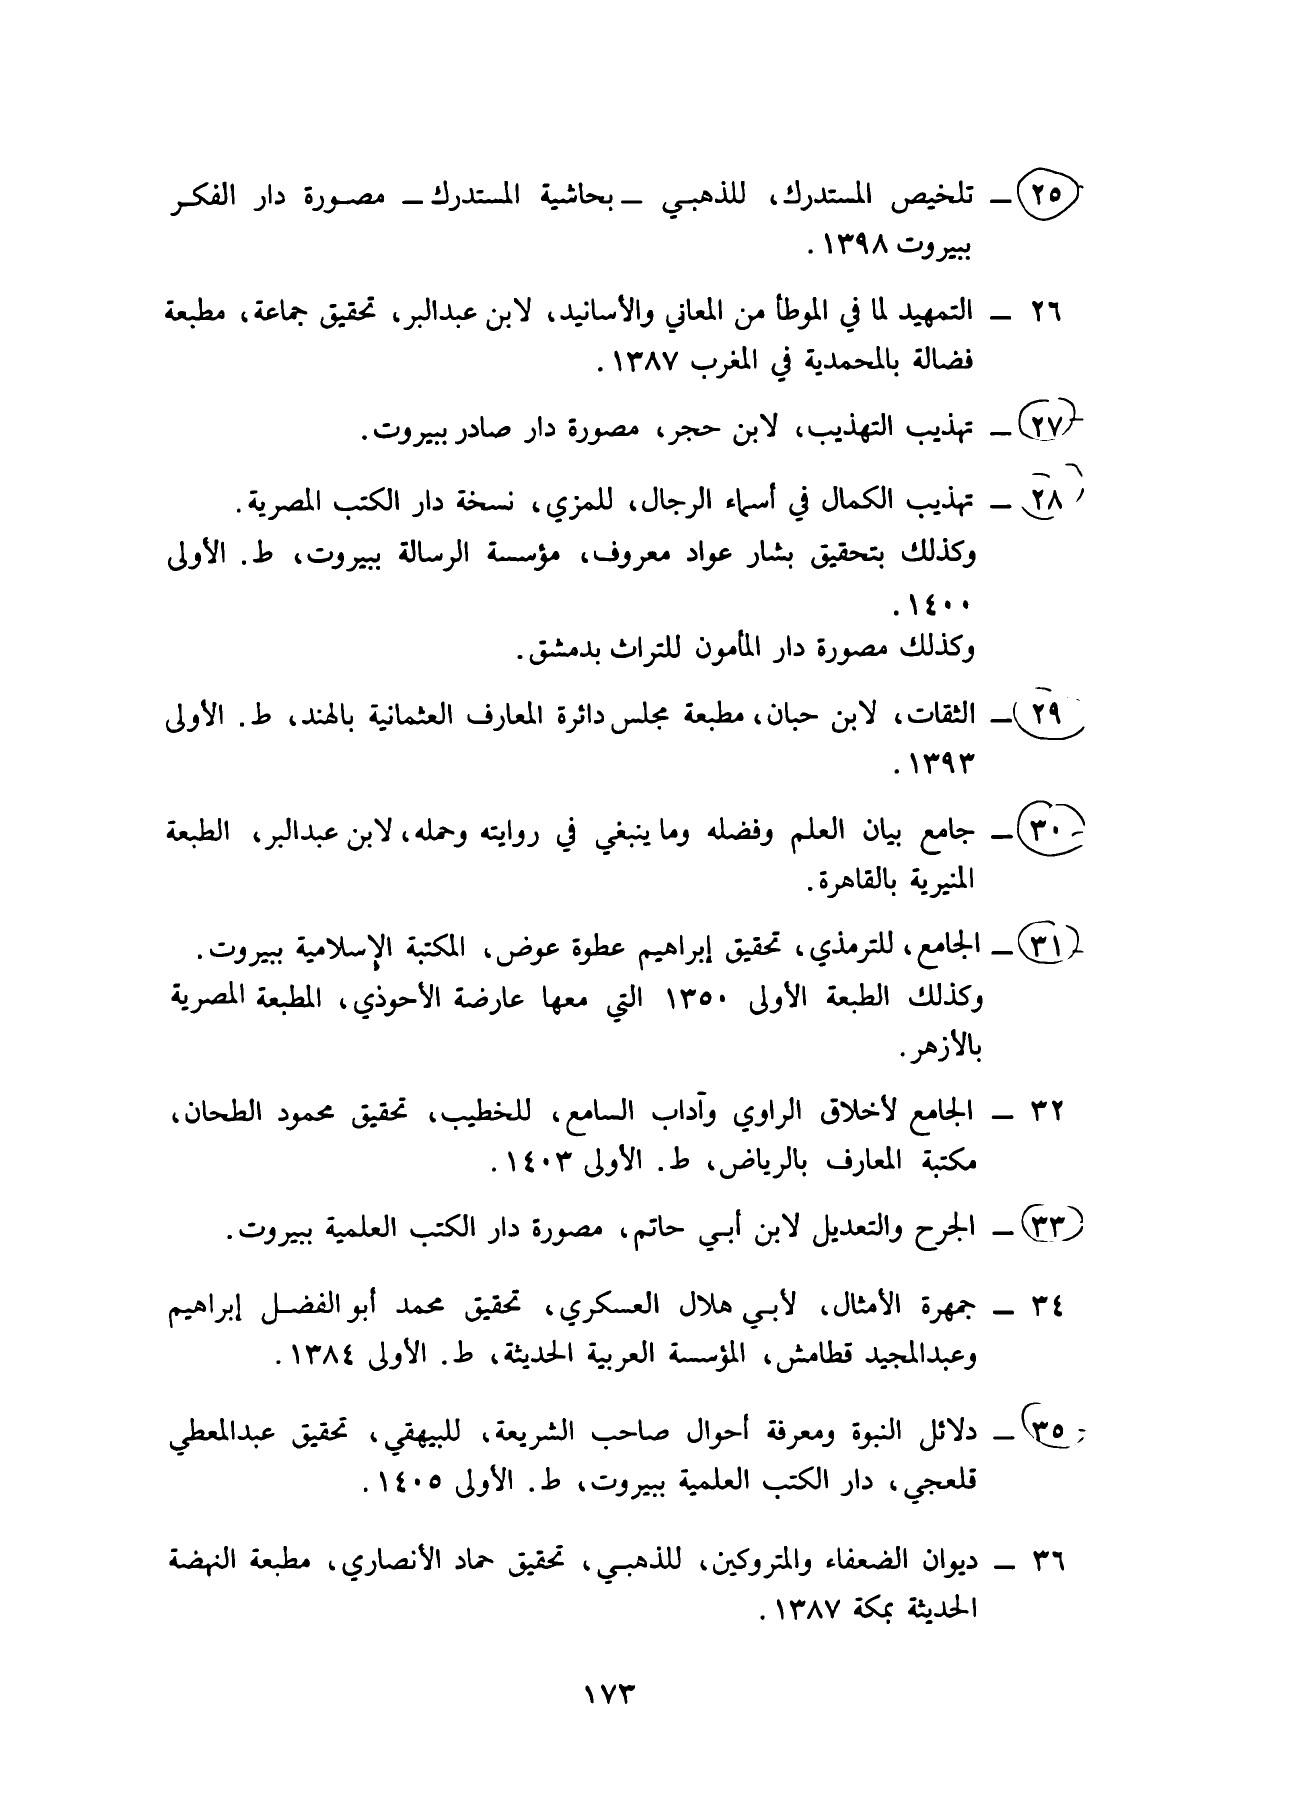 ٢٥ ـ تلخيص المستدرك، للذهبـي ـ بحاشية المستدرك ـ مصـورة دار الفكـر
ببيروت ١٣٩٨.
٢٦ ـ التمهيد لما في الموطأ من المعاني والأسانيد، لابن عبدالبر، تحقيق جماعة، مطبعة
فضالة بالمحمدية في المغرب ١٣٨٧.
٢٧ ـ تهذيب التهذيب، لابن حجر، مصورة دار صادر ببيروت.
٢٨ ـ تهذيب الكمال في أسماء الرجال، للمزي، نسخة دار الكتب المصرية.
وكذلك بتحقيق بشار عواد معروف، مؤسسة الرسالة ببيروت، ط. الأولى
١٤٠٠.
وكذلك مصورة دار المأمون للتراث بدمشق.
٢٩ ـ الثقات، لابن حبان، مطبعة مجلس دائرة المعارف العثمانية بالهند، ط. الأولى
١٣٩٣.
٣٠ ـ جامع بيان العلم وفضله وما ينبغي في روايته وحمله، لابن عبدالبر، الطبعة
المنيرية بالقاهرة.
٣١ ـ الجامع، للترمذي، تحقيق إبراهيم عطوة عوض، المكتبة الإسلامية ببيروت.
وكذلك الطبعة الأولى ١٣٥٠ التي معها عارضة الأحوذي، المطبعة المصرية
بالأزهر.
٣٢ ـ الجامع لأخلاق الراوي وآداب السامع، للخطيب، تحقيق محمود الطحان،
مكتبة المعارف بالرياض، ط. الأولى ١٤٠٣.
٣٣ ـ الجرح والتعديل لابن أبـي حاتم، مصورة دار الكتب العلمية ببيروت.
٣٤ ـ جمهرة الأمثال، لأبـي هلال العسكري، تحقيق محمد أبو الفضـل إبراهيم
وعبدالمجيد قطامش، المؤسسة العربية الحديثة، ط. الأولى ١٣٨٤.
٣٥ ـ دلائل النبوة ومعرفة أحوال صاحب الشريعة، للبيهقي، تحقيق عبدالمعطي
قلعجي، دار الكتب العلمية ببيروت، ط. الأولى ١٤٠٥.
٣٦ ـ ديوان الضعفاء والمتروكين، للذهبـي، تحقيق حماد الأنصاري، مطبعة النهضة
الحديثة بمكة ١٣٨٧.
١٧٣